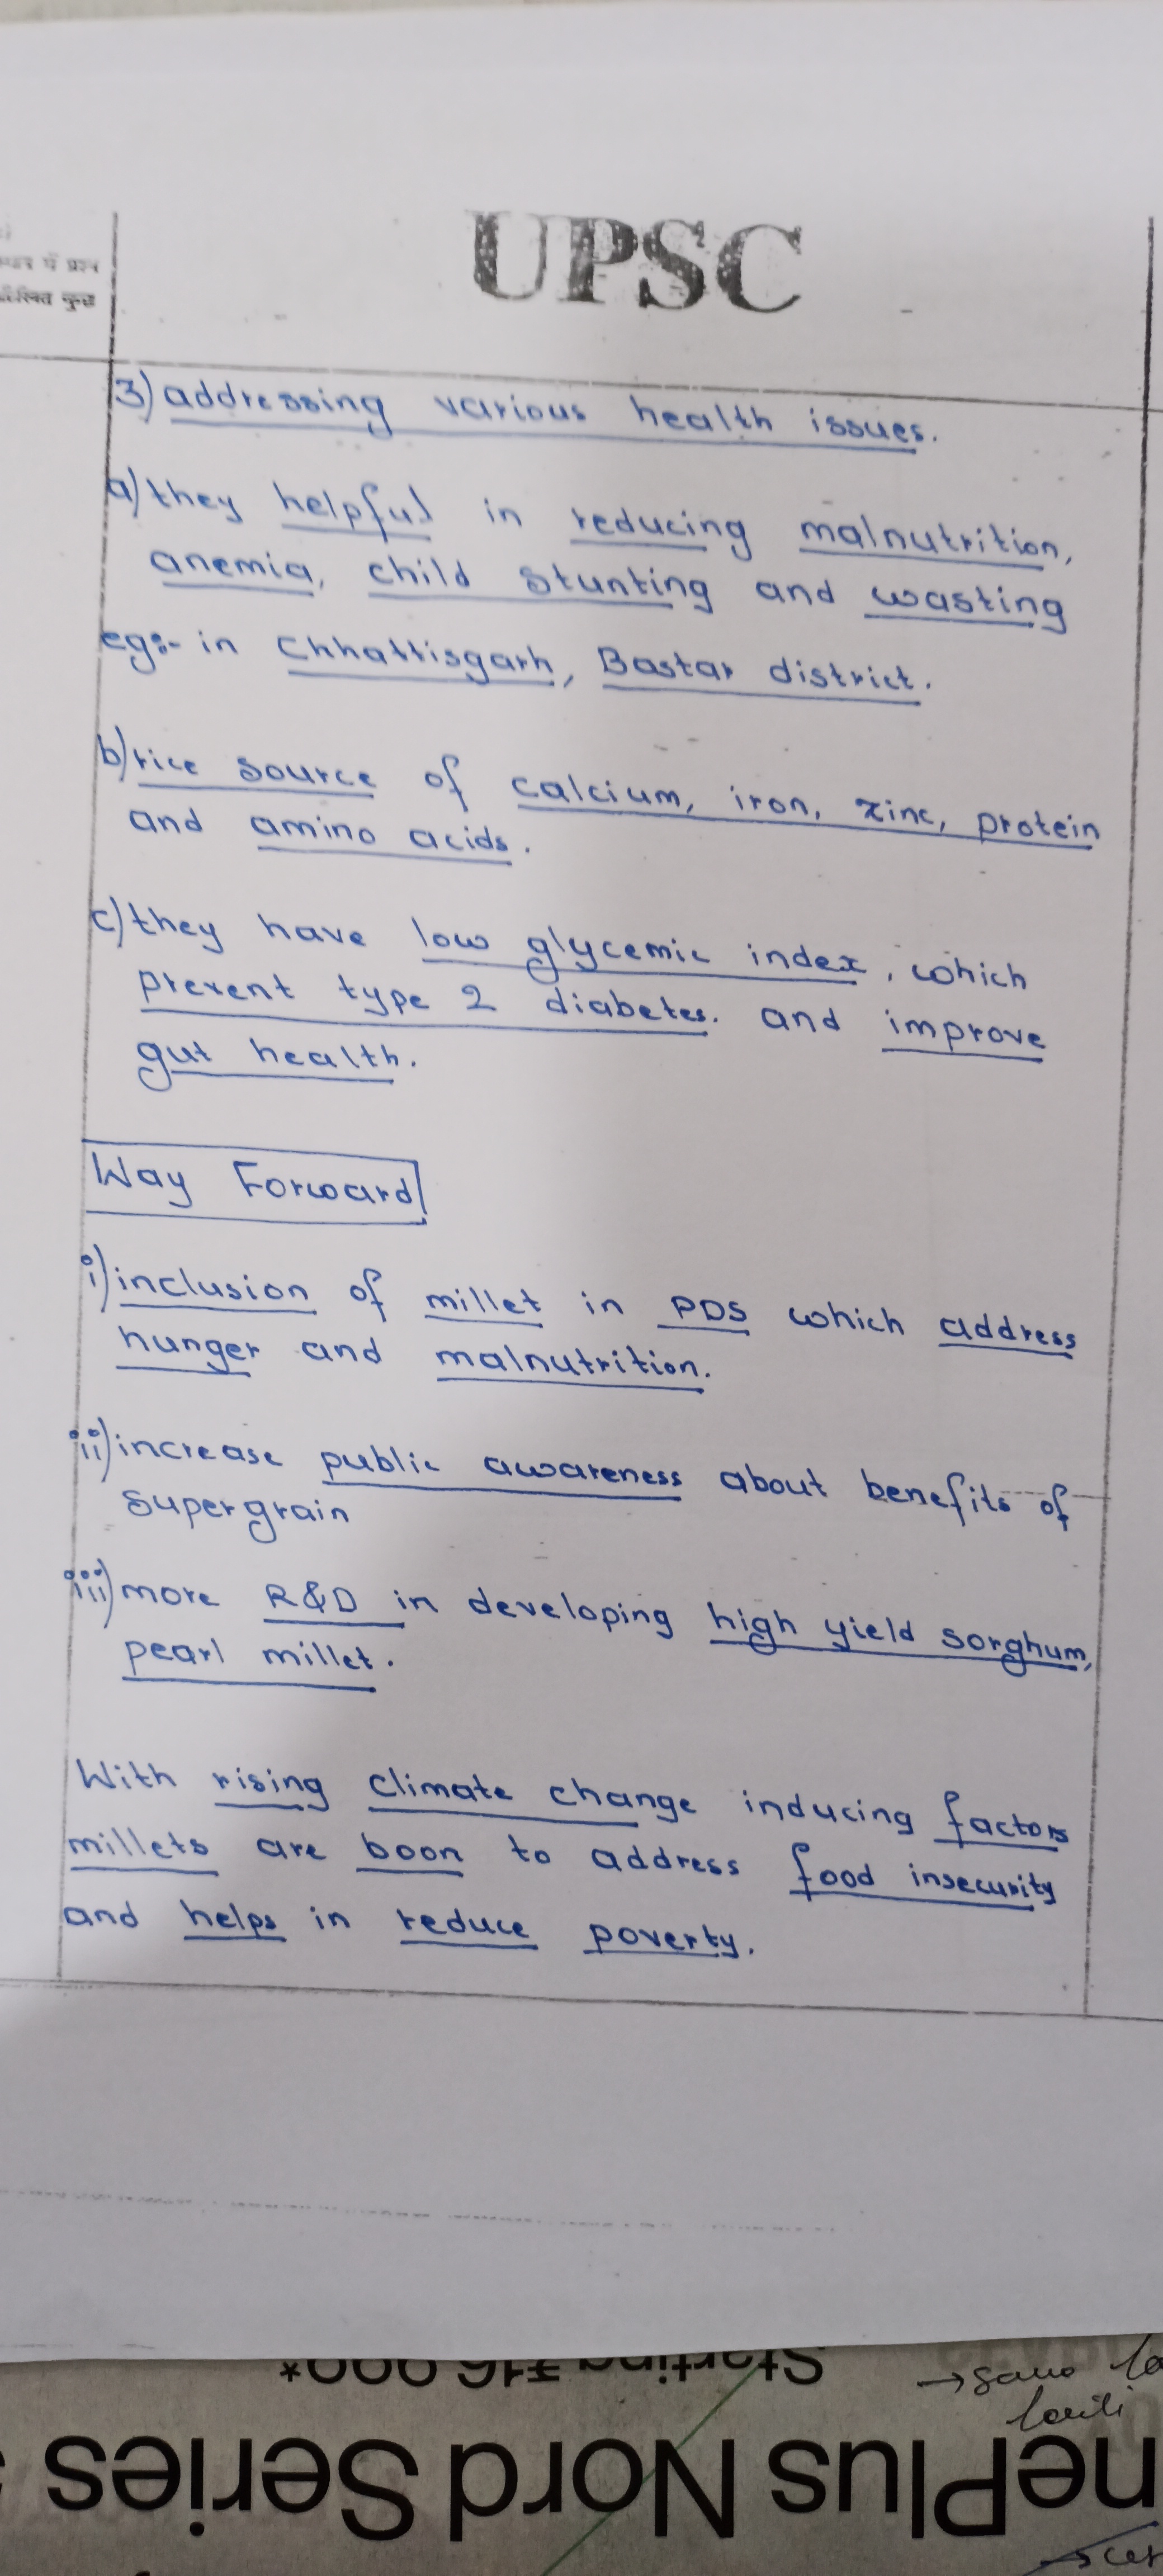 UPSC
में प्रश्न
3) addressing various health issues.
a) they helpful in reducing malnutrition,
anemia, child stunting and wasting
eg:- in Chhattisgarh, Bastar district.
b) rice source of calcium, iron, zinc, protein
and amino acids.
c) they have low glycemic index, which
prevent type 2 diabetes. and improve
gut health.
Way Forward
i) inclusion of millet in PDS which address
hunger and malnutrition.
ii) increase public awareness about benefits of
supergrain
iii) more R&D in developing high yield sorghum,
pearl millet.
With rising climate change inducing factors
millets are boon to address food insecurity
and helps in reduce poverty.
Starting ₹16,000*
nePlus Nord Series